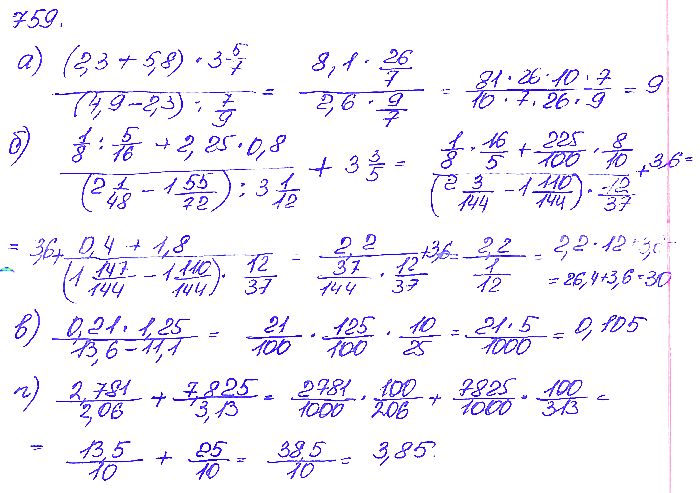 759.
а) ((2,3 + 5,8) · 3 5/7) / ((4,9 − 2,3) : 7/9) = (8,1 · 26/7) / (2,6 · 9/7) = (81 · 26 · 10 · 7) / (10 · 7 · 26 · 9) = 9
б) (1/8 : 5/16 + 2,25 · 0,8) / ((2 1/48 − 1 55/72) : 3 1/12) + 3 3/5 = (1/8 · 16/5 + 225/100 · 8/10) / ((2 3/144 − 1 110/144) · 12/37) + 3,6 =
= 3,6 + (0,4 + 1,8) / ((1 147/144 − 1 110/144) · 12/37) = 2,2 / (37/144 · 12/37) + 3,6 = 2,2 / (1/12) = 2,2 · 12 + 3,6 =
= 26,4 + 3,6 = 30
в) (0,21 · 1,25) / (13,6 − 11,1) = 21/100 · 125/100 · 10/25 = (21 · 5)/1000 = 0,105
г) 2,781/2,06 + 7,825/3,13 = 2781/1000 · 100/206 + 7825/1000 · 100/313 =
= 13,5/10 + 25/10 = 38,5/10 = 3,85.